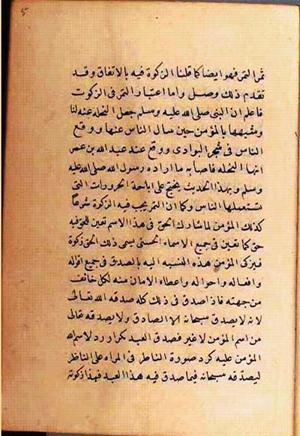 ثمر التمر فهو ايضا كما قلنا الزكوة فيه بالاتفاق وقد
تقدم ذلك وصل واما اعتبار التمر فى الزكوت
فاعلم ان النبى صلى الله عليه وسلم جعل النخلة عمة لنا
ومشبهها بالمؤمن حين سال الناس عنها ووقع
الناس فى شجر البوادى ووقع عند عبد الله بن عمر
انها النخلة فاصاب ما اراده رسول الله صلى الله عليه
وسلم وبهذا الحديث يحتج على اباحة الحزورات التى
تستعملها الناس وكما ان التمر يجب فيه الزكوة شرعا
كذلك المؤمن لما شارك الحق فى هذا الاسم تعين للحق فيه
حق كما تعين فى جميع الاسماء الحسنى يسمى ذلك الحق زكوة
فيزكى المؤمن هذه النسبة اليه بالصدق فى جميع اقواله
وافعاله واحواله واعطاء الامان منه لكل خائف
من جهته فاذا صدق فى ذلك كله صدقه الله تعالى
لانه لا يصدق سبحانه الا الصادق ولا يصدقه تعالى
من اسمه المؤمن لا غير فصدق العبد يكون رد الاسم الله
المؤمن عليه كرد صورة الناظر فى المراة على الناظر
ليصدقه سبحانه فيما صدق فيه هذا العبد فهذا زكوته